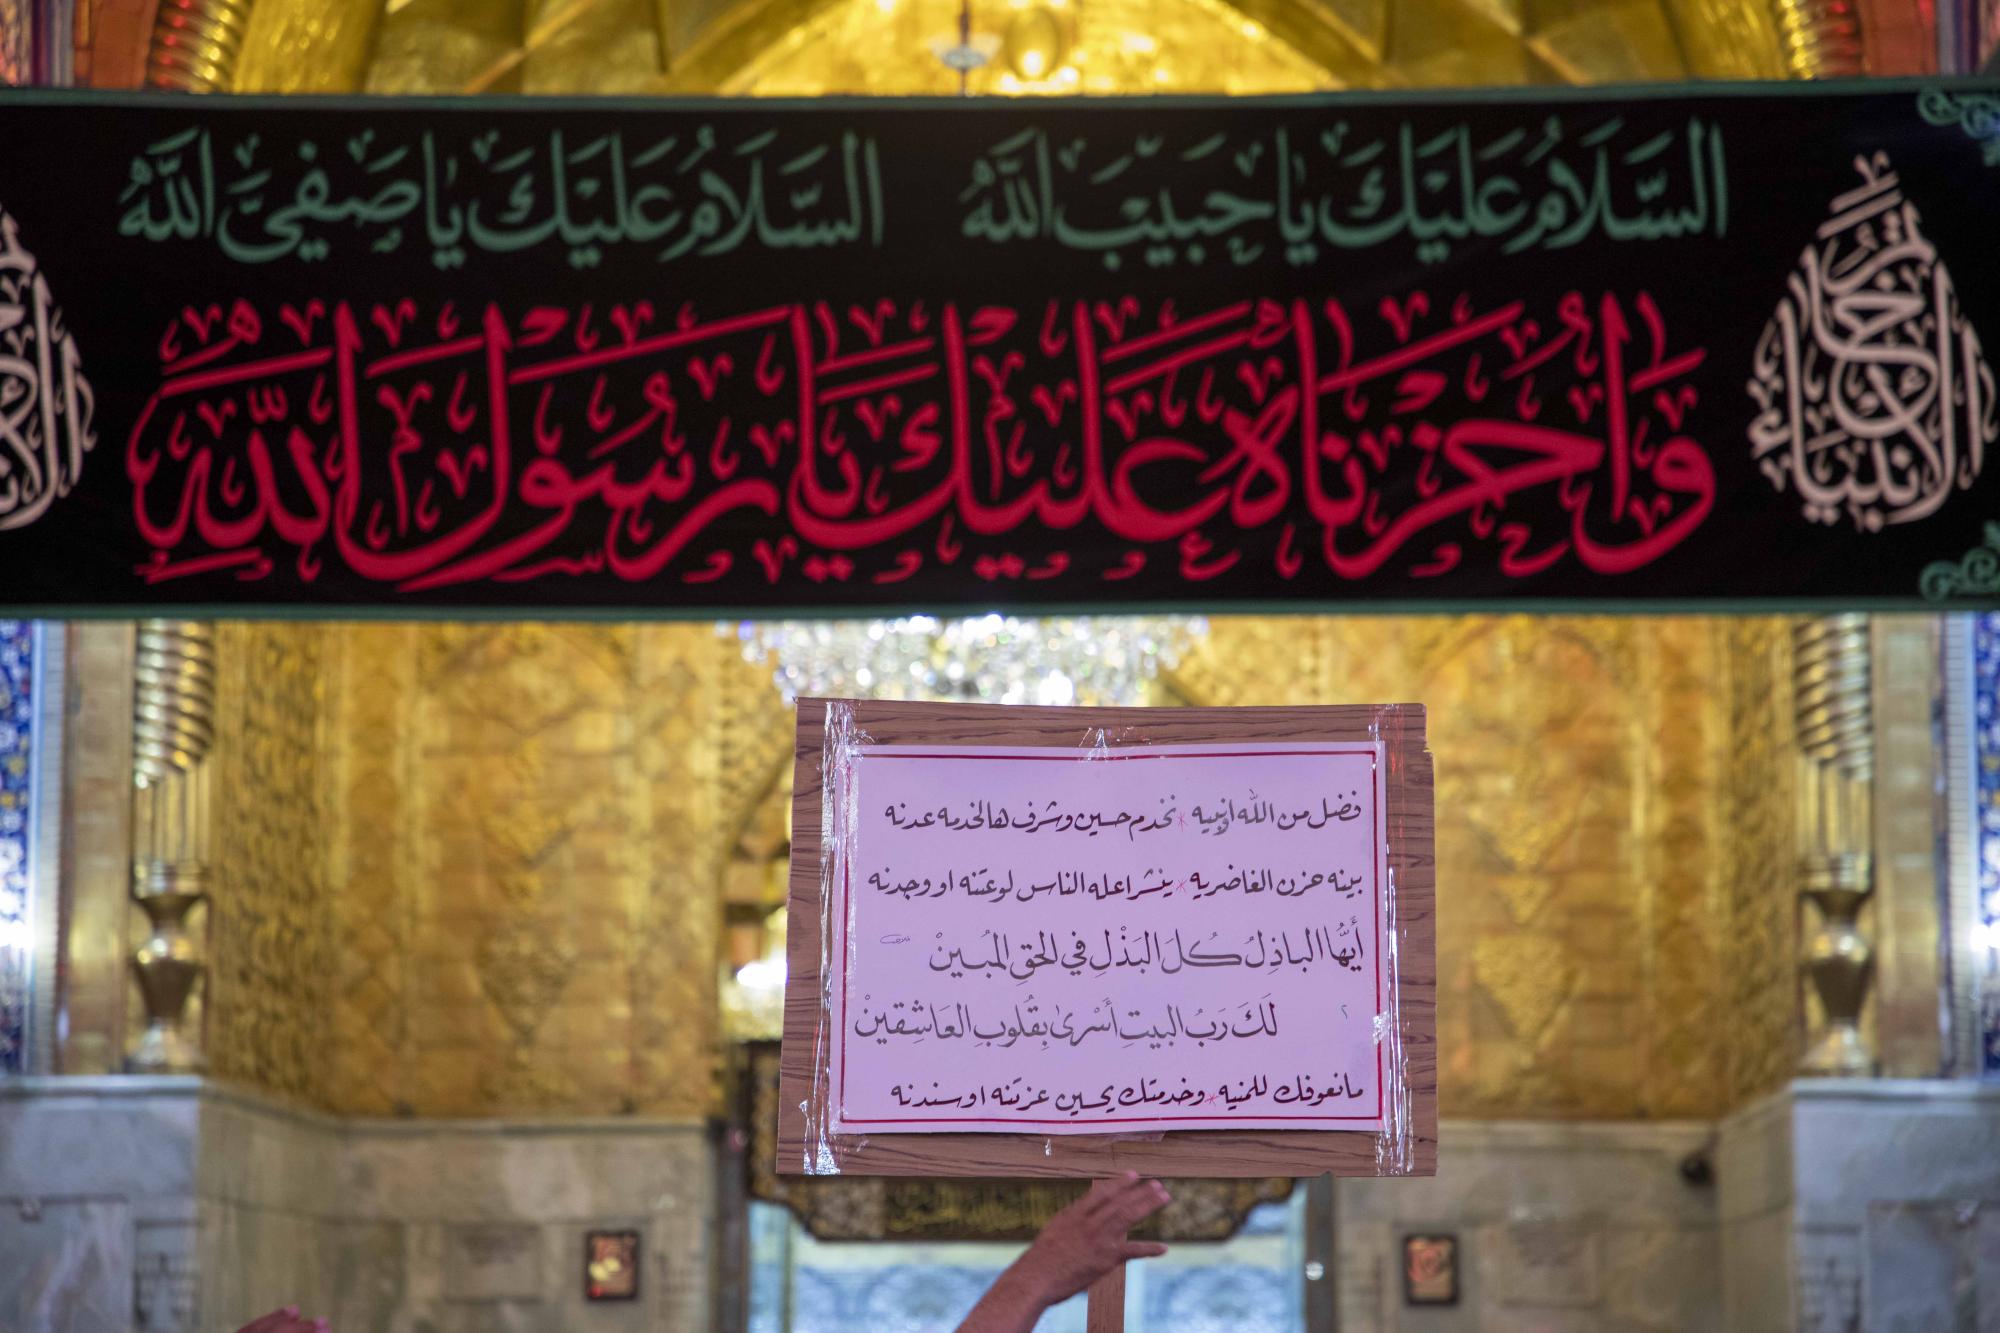 السَّلَامُ عَلَيْكَ يَا حَبِيبَ اللَّهِ السَّلَامُ عَلَيْكَ يَا صَفِيَّ اللَّهِ
وَاحُزْنَاهُ عَلَيْكَ يَا رَسُولَ اللَّهِ
يا خاتم الأنبياء
فضل من الله اوهيبه * نخدم حسين وشرف هالخدمه عدنه
بينه حزن الغاضريه * ينشر اعله الناس لوعتنه او وجدنه
أَيُّها الباذِلُ كُلَ البَذْلِ في الحقِ المُبينْ
٢ لَكَ رَبُ البيتِ أَسْرىٰ بِقُلوبِ العَاشِقينْ
مانعوفك للمنيه * وخدمتك يحسين عزتنه او سندنه